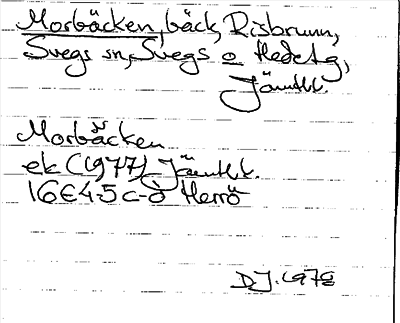 Morbäcken, bäck, Risbrunn,
Svegs sn, Svegs o Hedetg,
Jämtl.
Morbäcken
ek (1977) Jämtl.
16E4-5c-d Herrö
D.J. 1978